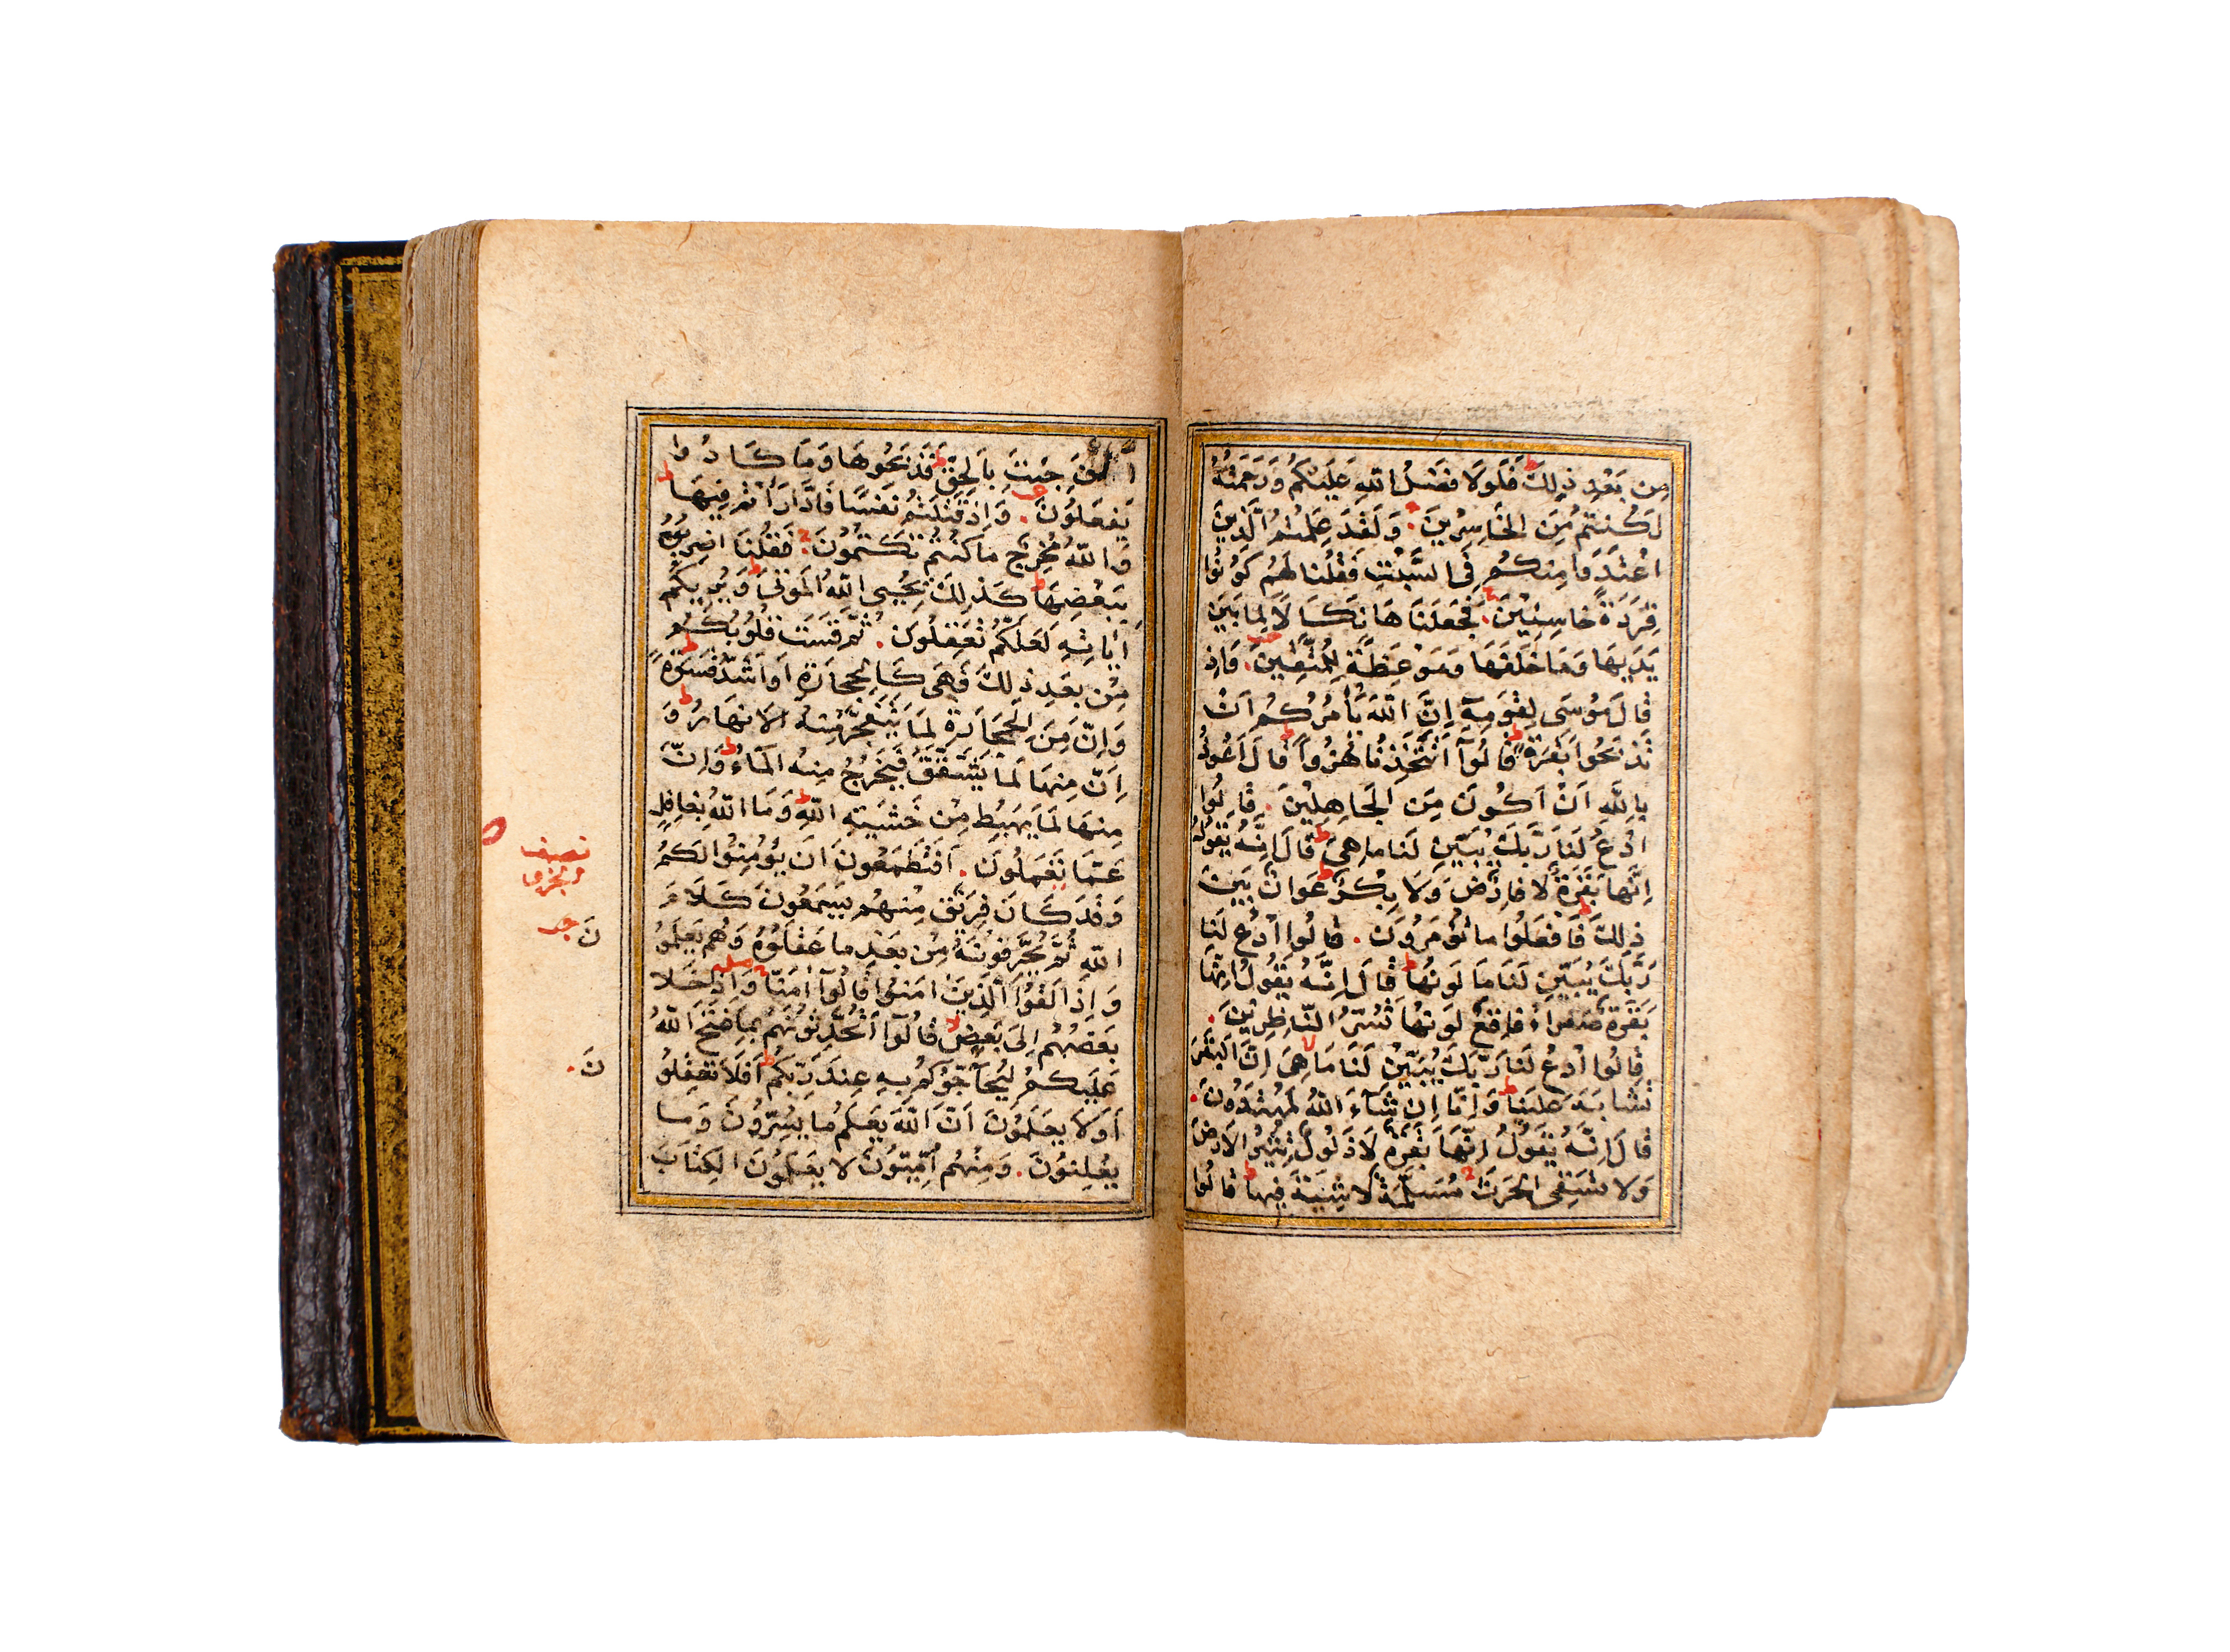 مِن بَعْدِ ذٰلِكَ فَلَوْلَا فَضْلُ اللّٰهِ عَلَيْكُمْ وَرَحْمَتُهُ
لَكُنتُم مِّنَ الْخَاسِرِينَ. وَلَقَدْ عَلِمْتُمُ الَّذِينَ
اعْتَدَوْا مِنكُمْ فِي السَّبْتِ فَقُلْنَا لَهُمْ كُونُوا
قِرَدَةً خَاسِئِينَ. فَجَعَلْنَاهَا نَكَالًا لِّمَا بَيْنَ
يَدَيْهَا وَمَا خَلْفَهَا وَمَوْعِظَةً لِّلْمُتَّقِينَ. وَإِذْ
قَالَ مُوسَى لِقَوْمِهِ إِنَّ اللّٰهَ يَأْمُرُكُمْ أَنْ
تَذْبَحُوا بَقَرَةً قَالُوا أَتَتَّخِذُنَا هُزُوًا قَالَ أَعُوذُ
بِاللّٰهِ أَنْ أَكُونَ مِنَ الْجَاهِلِينَ. قَالُوا
ادْعُ لَنَا رَبَّكَ يُبَيِّن لَنَا مَا هِيَ قَالَ إِنَّهُ يَقُولُ
إِنَّهَا بَقَرَةٌ لَا فَارِضٌ وَلَا بِكْرٌ عَوَانٌ بَيْنَ
ذٰلِكَ فَافْعَلُوا مَا تُؤْمَرُونَ. قَالُوا ادْعُ لَنَا
رَبَّكَ يُبَيِّن لَنَا مَا لَوْنُهَا قَالَ إِنَّهُ يَقُولُ إِنَّهَا
بَقَرَةٌ صَفْرَاءُ فَاقِعٌ لَوْنُهَا تَسُرُّ النَّاظِرِينَ.
قَالُوا ادْعُ لَنَا رَبَّكَ يُبَيِّن لَنَا مَا هِيَ إِنَّ الْبَقَرَ
تَشَابَهَ عَلَيْنَا وَإِنَّا إِن شَآءَ اللّٰهُ لَمُهْتَدُونَ.
قَالَ إِنَّهُ يَقُولُ إِنَّهَا بَقَرَةٌ لَا ذَلُولٌ تُثِيرُ الْأَرْضَ
وَلَا تَسْقِي الْحَرْثَ مُسَلَّمَةٌ لَا شِيَةَ فِيهَا قَالُوا
الْآنَ جِئْتَ بِالْحَقِّ فَذَبَحُوهَا وَمَا كَادُوا
يَفْعَلُونَ. وَإِذْ قَتَلْتُمْ نَفْسًا فَادَّارَأْتُمْ فِيهَا
وَاللّٰهُ مُخْرِجٌ مَا كُنتُمْ تَكْتُمُونَ. فَقُلْنَا اضْرِبُوهُ
بِبَعْضِهَا كَذٰلِكَ يُحْيِي اللّٰهُ الْمَوْتَى وَيُرِيكُمْ
آيَاتِهِ لَعَلَّكُمْ تَعْقِلُونَ. ثُمَّ قَسَتْ قُلُوبُكُمْ
مِّن بَعْدِ ذٰلِكَ فَهِيَ كَالْحِجَارَةِ أَوْ أَشَدُّ قَسْوَةً
وَإِنَّ مِنَ الْحِجَارَةِ لَمَا يَتَفَجَّرُ مِنْهُ الْأَنْهَارُ وَ
إِنَّ مِنْهَا لَمَا يَشَّقَّقُ فَيَخْرُجُ مِنْهُ الْمَاءُ وَإِنَّ
مِنْهَا لَمَا يَهْبِطُ مِنْ خَشْيَةِ اللّٰهِ وَمَا اللّٰهُ بِغَافِلٍ
عَمَّا تَعْمَلُونَ. أَفَتَطْمَعُونَ أَن يُؤْمِنُوا لَكُمْ
وَقَدْ كَانَ فَرِيقٌ مِنْهُمْ يَسْمَعُونَ كَلَامَ
اللّٰهِ ثُمَّ يُحَرِّفُونَهُ مِنْ بَعْدِ مَا عَقَلُوهُ وَهُمْ يَعْلَمُو
نَ
وَإِذَا لَقُوا الَّذِينَ آمَنُوا قَالُوا آمَنَّا وَإِذَا خَلَا
بَعْضُهُمْ إِلَى بَعْضٍ قَالُوا أَتُحَدِّثُونَهُم بِمَا فَتَحَ اللّٰهُ
عَلَيْكُمْ لِيُحَآجُّوكُمْ بِهِ عِندَ رَبِّكُمْ أَفَلَا تَعْقِلُو
نَ.
أَوَلَا يَعْلَمُونَ أَنَّ اللّٰهَ يَعْلَمُ مَا يُسِرُّونَ وَمَا
يُعْلِنُونَ. وَمِنْهُمْ أُمِّيُّونَ لَا يَعْلَمُونَ الْكِتَابَ
نصف
الجزو